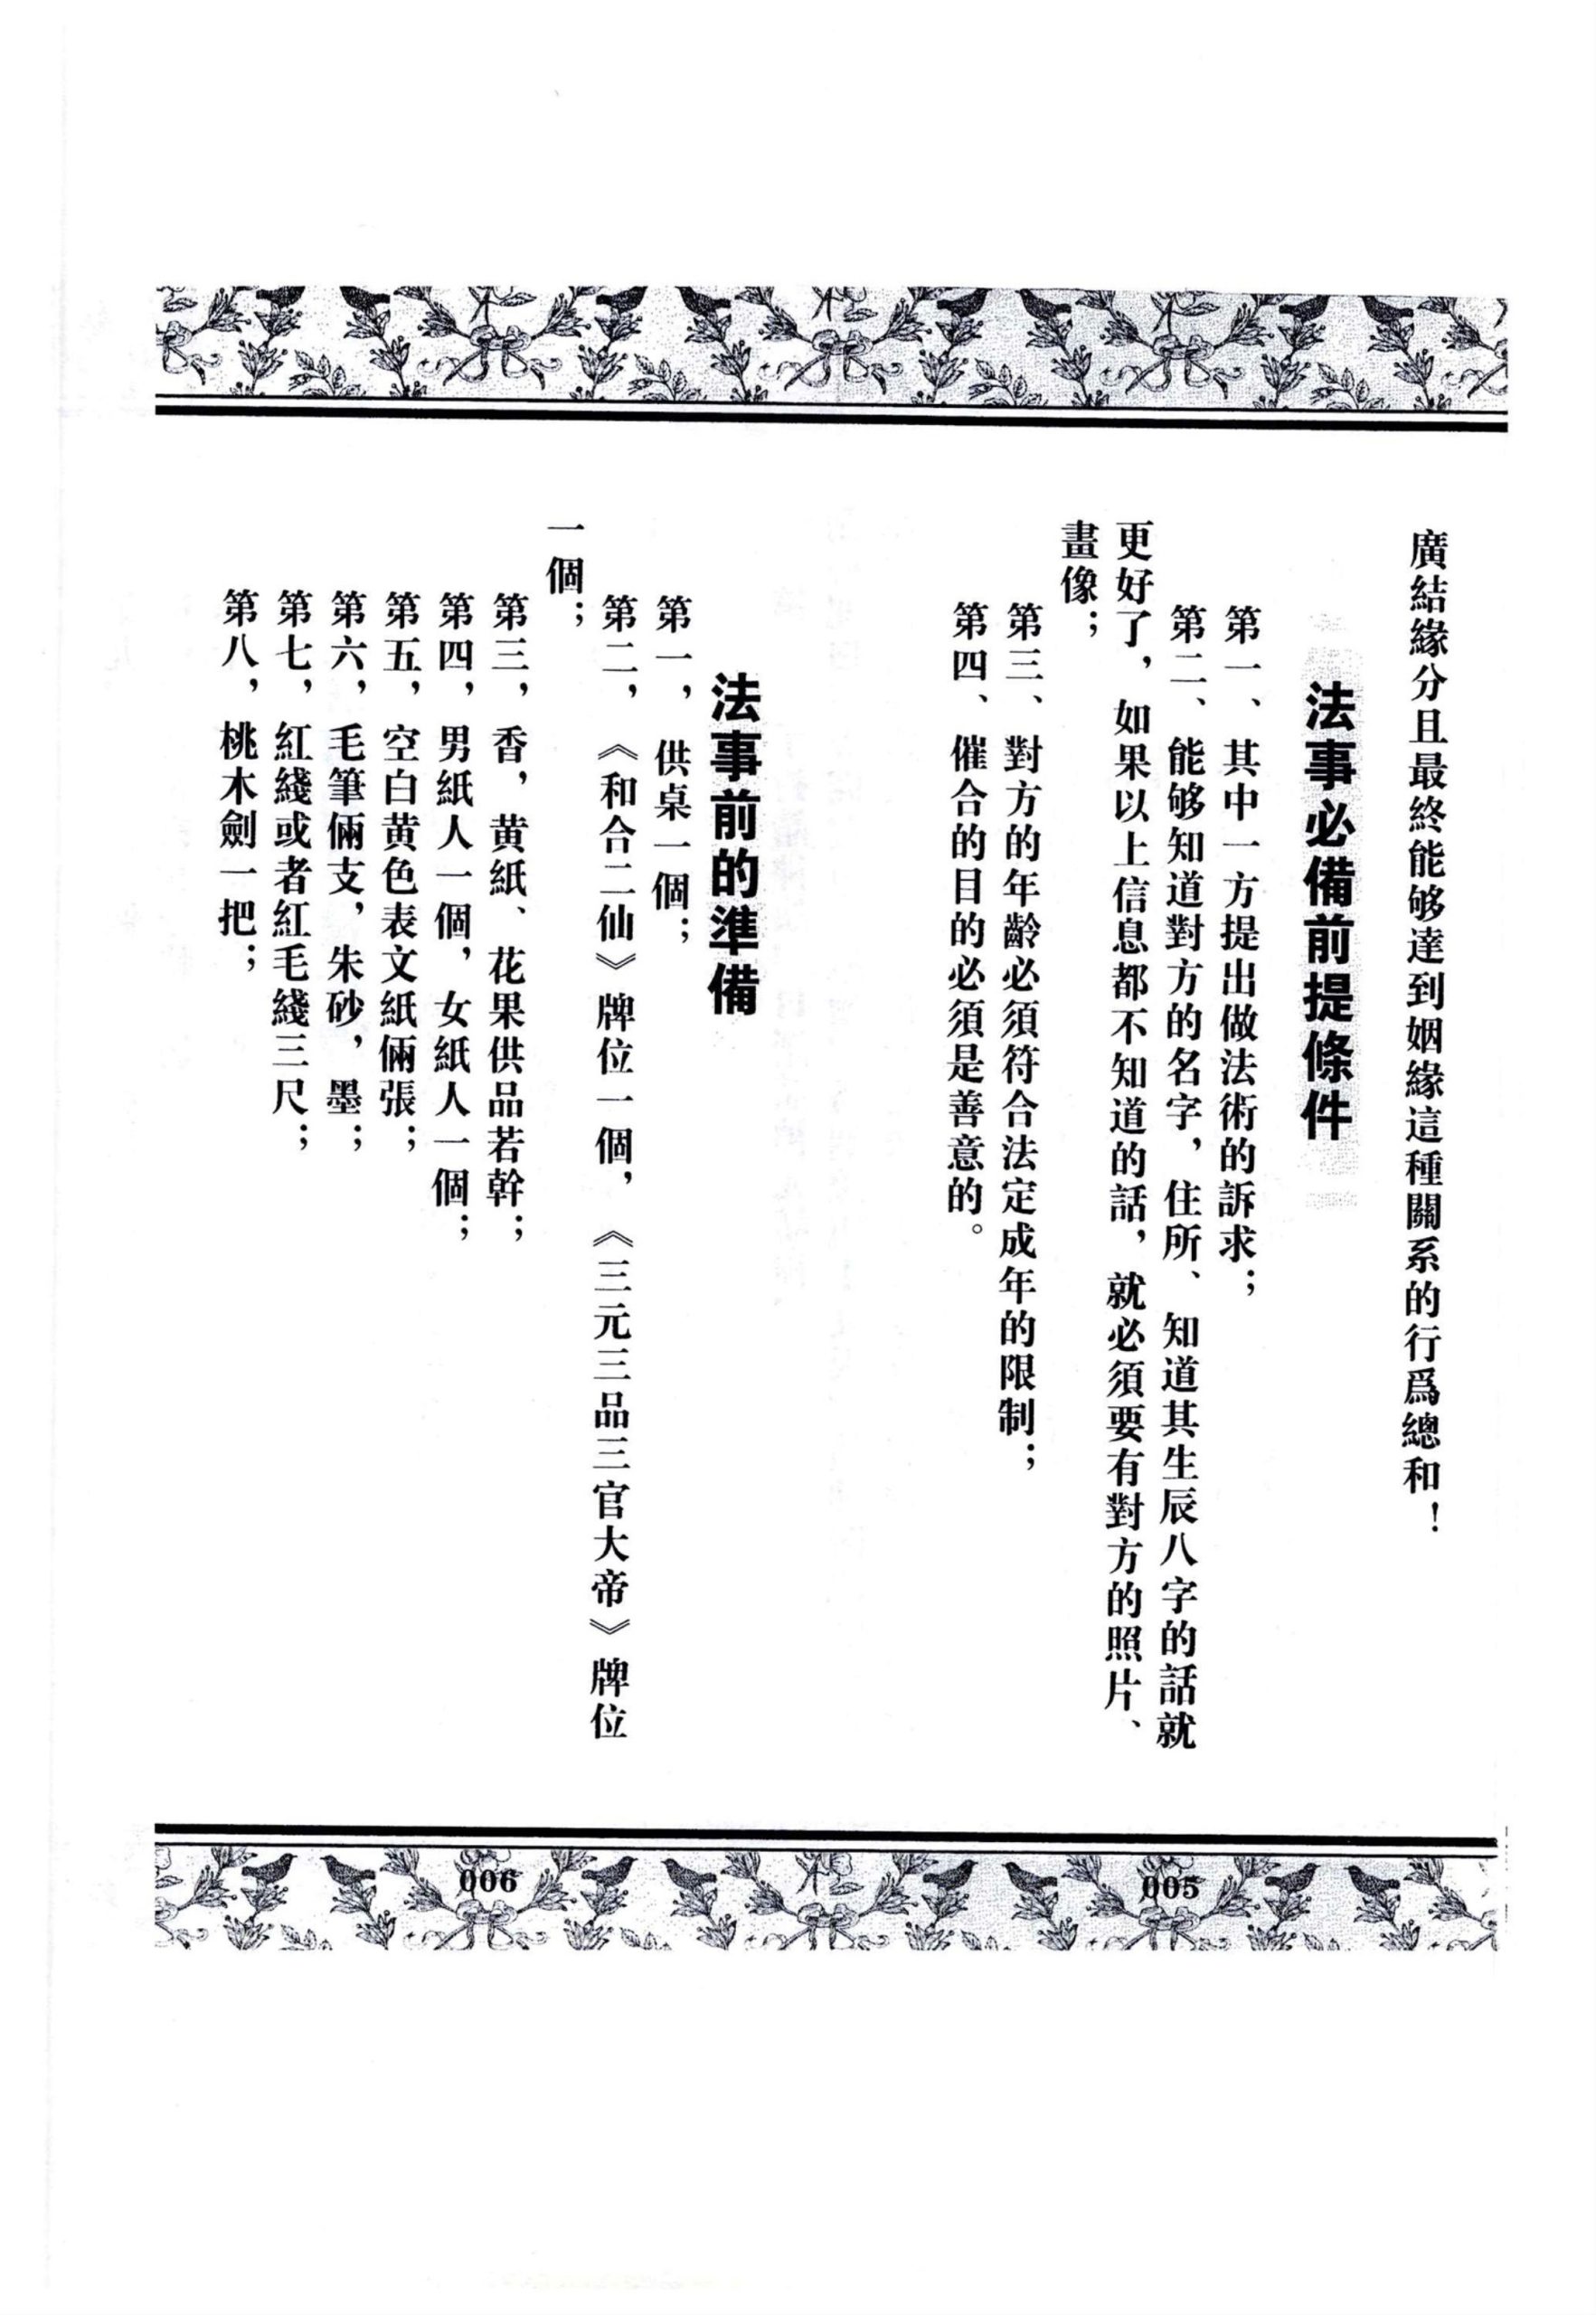 廣結緣分且最終能够達到姻緣這種關系的行爲總和！
法事必備前提條件
第一、其中一方提出做法術的訴求；
第二、能够知道對方的名字，住所、知道其生辰八字的話就
更好了，如果以上信息都不知道的話，就必須要有對方的照片、
畫像；
第三、對方的年齡必須符合法定成年的限制；
第四、催合的目的必須是善意的。
005
法事前的準備
第一，供桌一個；
第二，《和合二仙》牌位一個，《三元三品三官大帝》牌位
一個；
第三，香，黄紙、花果供品若幹；
第四，男紙人一個，女紙人一個；
第五，空白黄色表文紙倆張；
第六，毛筆倆支，朱砂，墨；
第七，紅綫或者紅毛綫三尺；
第八，桃木劍一把；
006